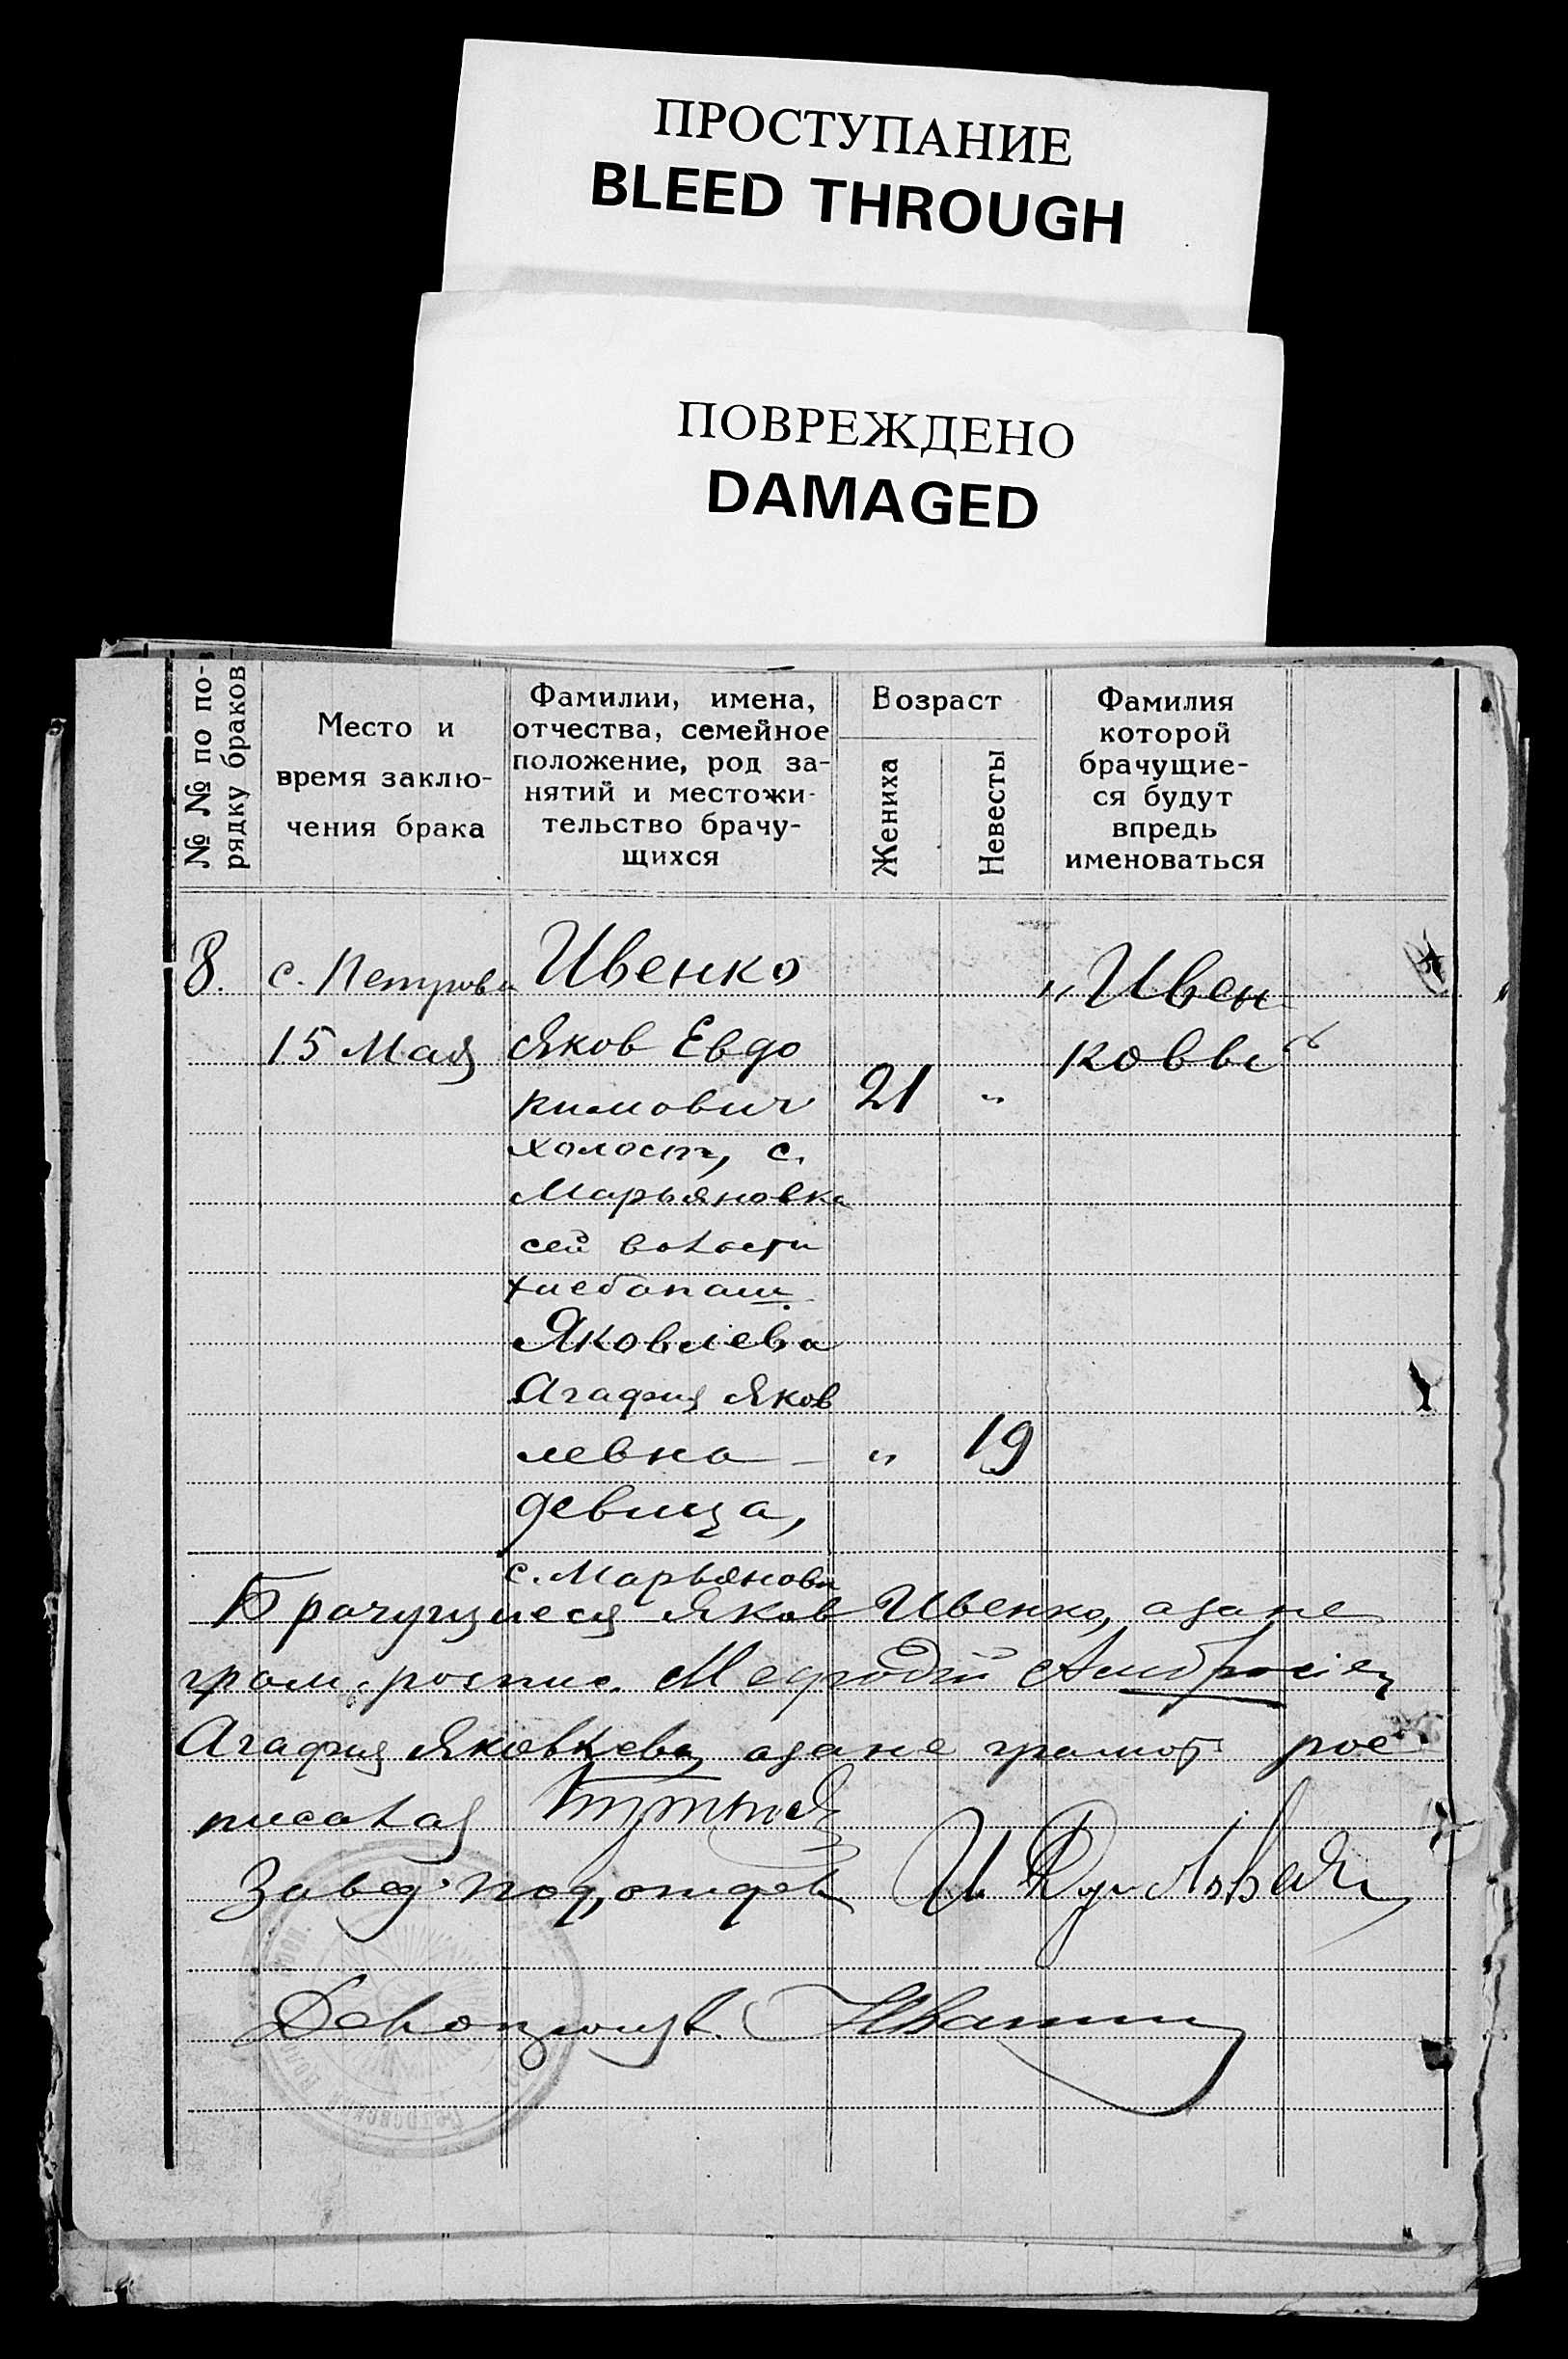 ПРОСТУПАНИЕ
BLEED THROUGH
ПОВРЕЖДЕНО
DAMAGED
№ № по по-
рядку браков
Место и
время заклю-
чения брака
Фамилии, имена,
отчества, семейное
положение, род за-
нятий и местожи-
тельство брачу-
щихся
Возраст
Жениха
Невесты
Фамилия
которой
брачущие-
ся будут
впредь
именоваться
8. с. Петровка Ивенко „Ивен
15 Мая Яков Евдо ковы“
кимович 21 "
холост, с.
Марьяновка
сей волости
хлебопаш.
Яковлева
Агафия Яков
левна - " 19
девица,
с. Марьяновка
Брачущиеся Яков Ивенко, а за не
грам. роспис. Мефодій
Агафия Яковлева, а за не грамот рос
писалая
Завед. под, отдел И
Делопроизв. Иванин